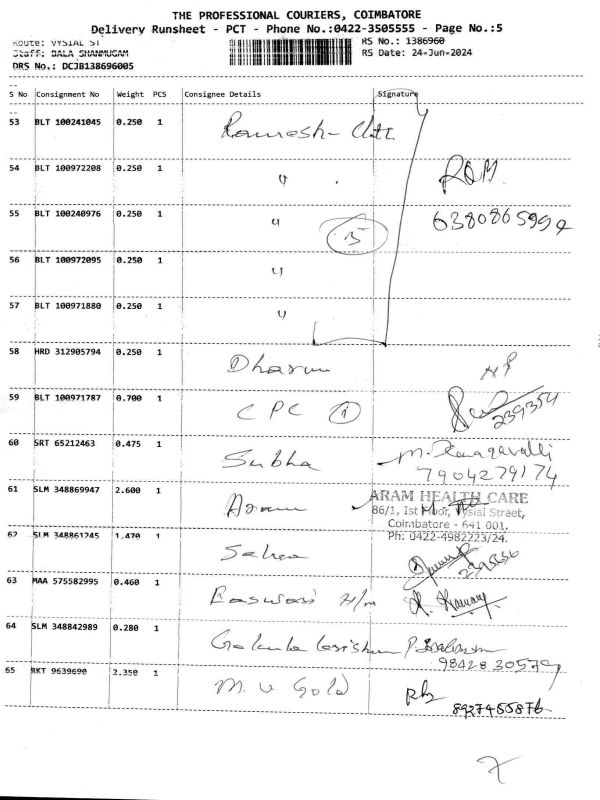 THE PROFESSIONAL COURIERS, COIMBATORE
Delivery Runsheet - PCT - Phone No.:0422-3505555 - Page No.:5
Route: VYSIAL ST RS No.: 1386960
Staff: BALA SHANMUGAM RS Date: 24-Jun-2024
DRS No.: DCJB138696005
S No Consignment No Weight PCS Consignee Details Signature
53 BLT 100241045 0.250 1 Ramesh
54 BLT 100972208 0.250 1 " RAM
55 BLT 100240976 0.250 1 " 6380865994
5
56 BLT 100972095 0.250 1 "
57 BLT 100971880 0.250 1 "
58 HRD 312905794 0.250 1 Dharun
59 BLT 100971787 0.700 1 CPC 1 239354
60 SRT 65212463 0.475 1 Subha M.
7904279174
61 SLM 348869947 2.600 1 Aram ARAM HEALTH CARE
86/1, Ist Floor, Vysial Street,
Coimbatore - 641 001.
Ph: 0422-4982223/24.
62 SLM 348861245 1.470 1
63 MAA 575582995 0.460 1 H/m
64 SLM 348842989 0.280 1
9842830579
65 RKT 9639690 2.350 1 M. V Gold
8927455876